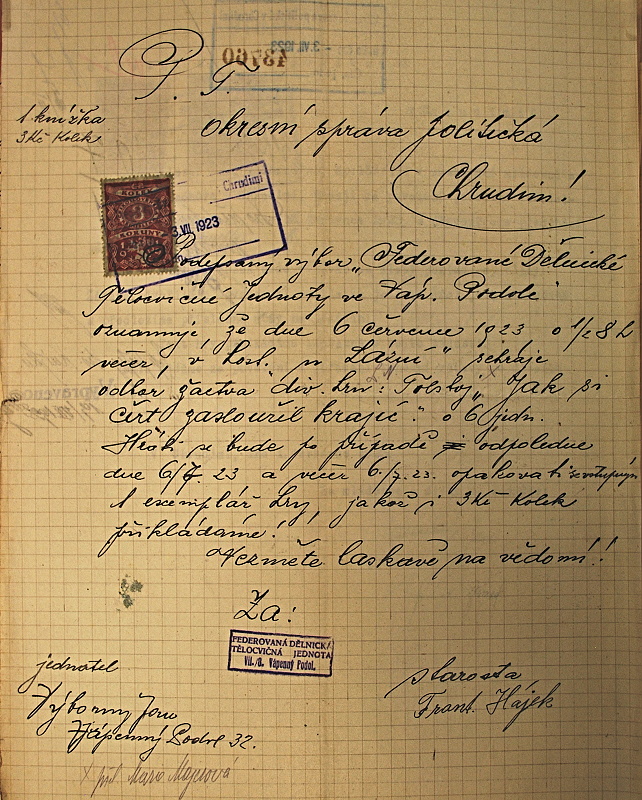 - 3. VII. 1923
43760
P. T.
1 knížka
3 Kč Kolek
okresní správa politická
Chrudim!
KOLEK
3
KORUNY
Chrudimi
3. VII. 1923
Podepsaný výbor „Federované Dělnické
Tělocvičné Jednoty ve Váp. Podole
oznamuje že dne 6 července 1923 o 1/2 8 h
večer, v host. „u Lázní" sehraje
odbor „žactva" div. hru: Tolstoj „Jak si
čert zasloužil krajíc." o 6 jedn.
Hráti se bude po případě odpoledne
dne 6/7. 23 a večer 6./7. 23. opakovati se vstupným
1 exemplář hry, jakož i 3 Kč Kolek
přikládáme!
Vezměte laskavě na vědomí!!
Za:
FEDEROVANÁ DĚLNICKÁ
TĚLOCVIČNÁ JEDNOTA
VII./O. Vápenný Podol.
jednatel
starosta
Výborný Jan
Frant. Hájek
Vápenný Podol 32.
x přel. Marie Majerová